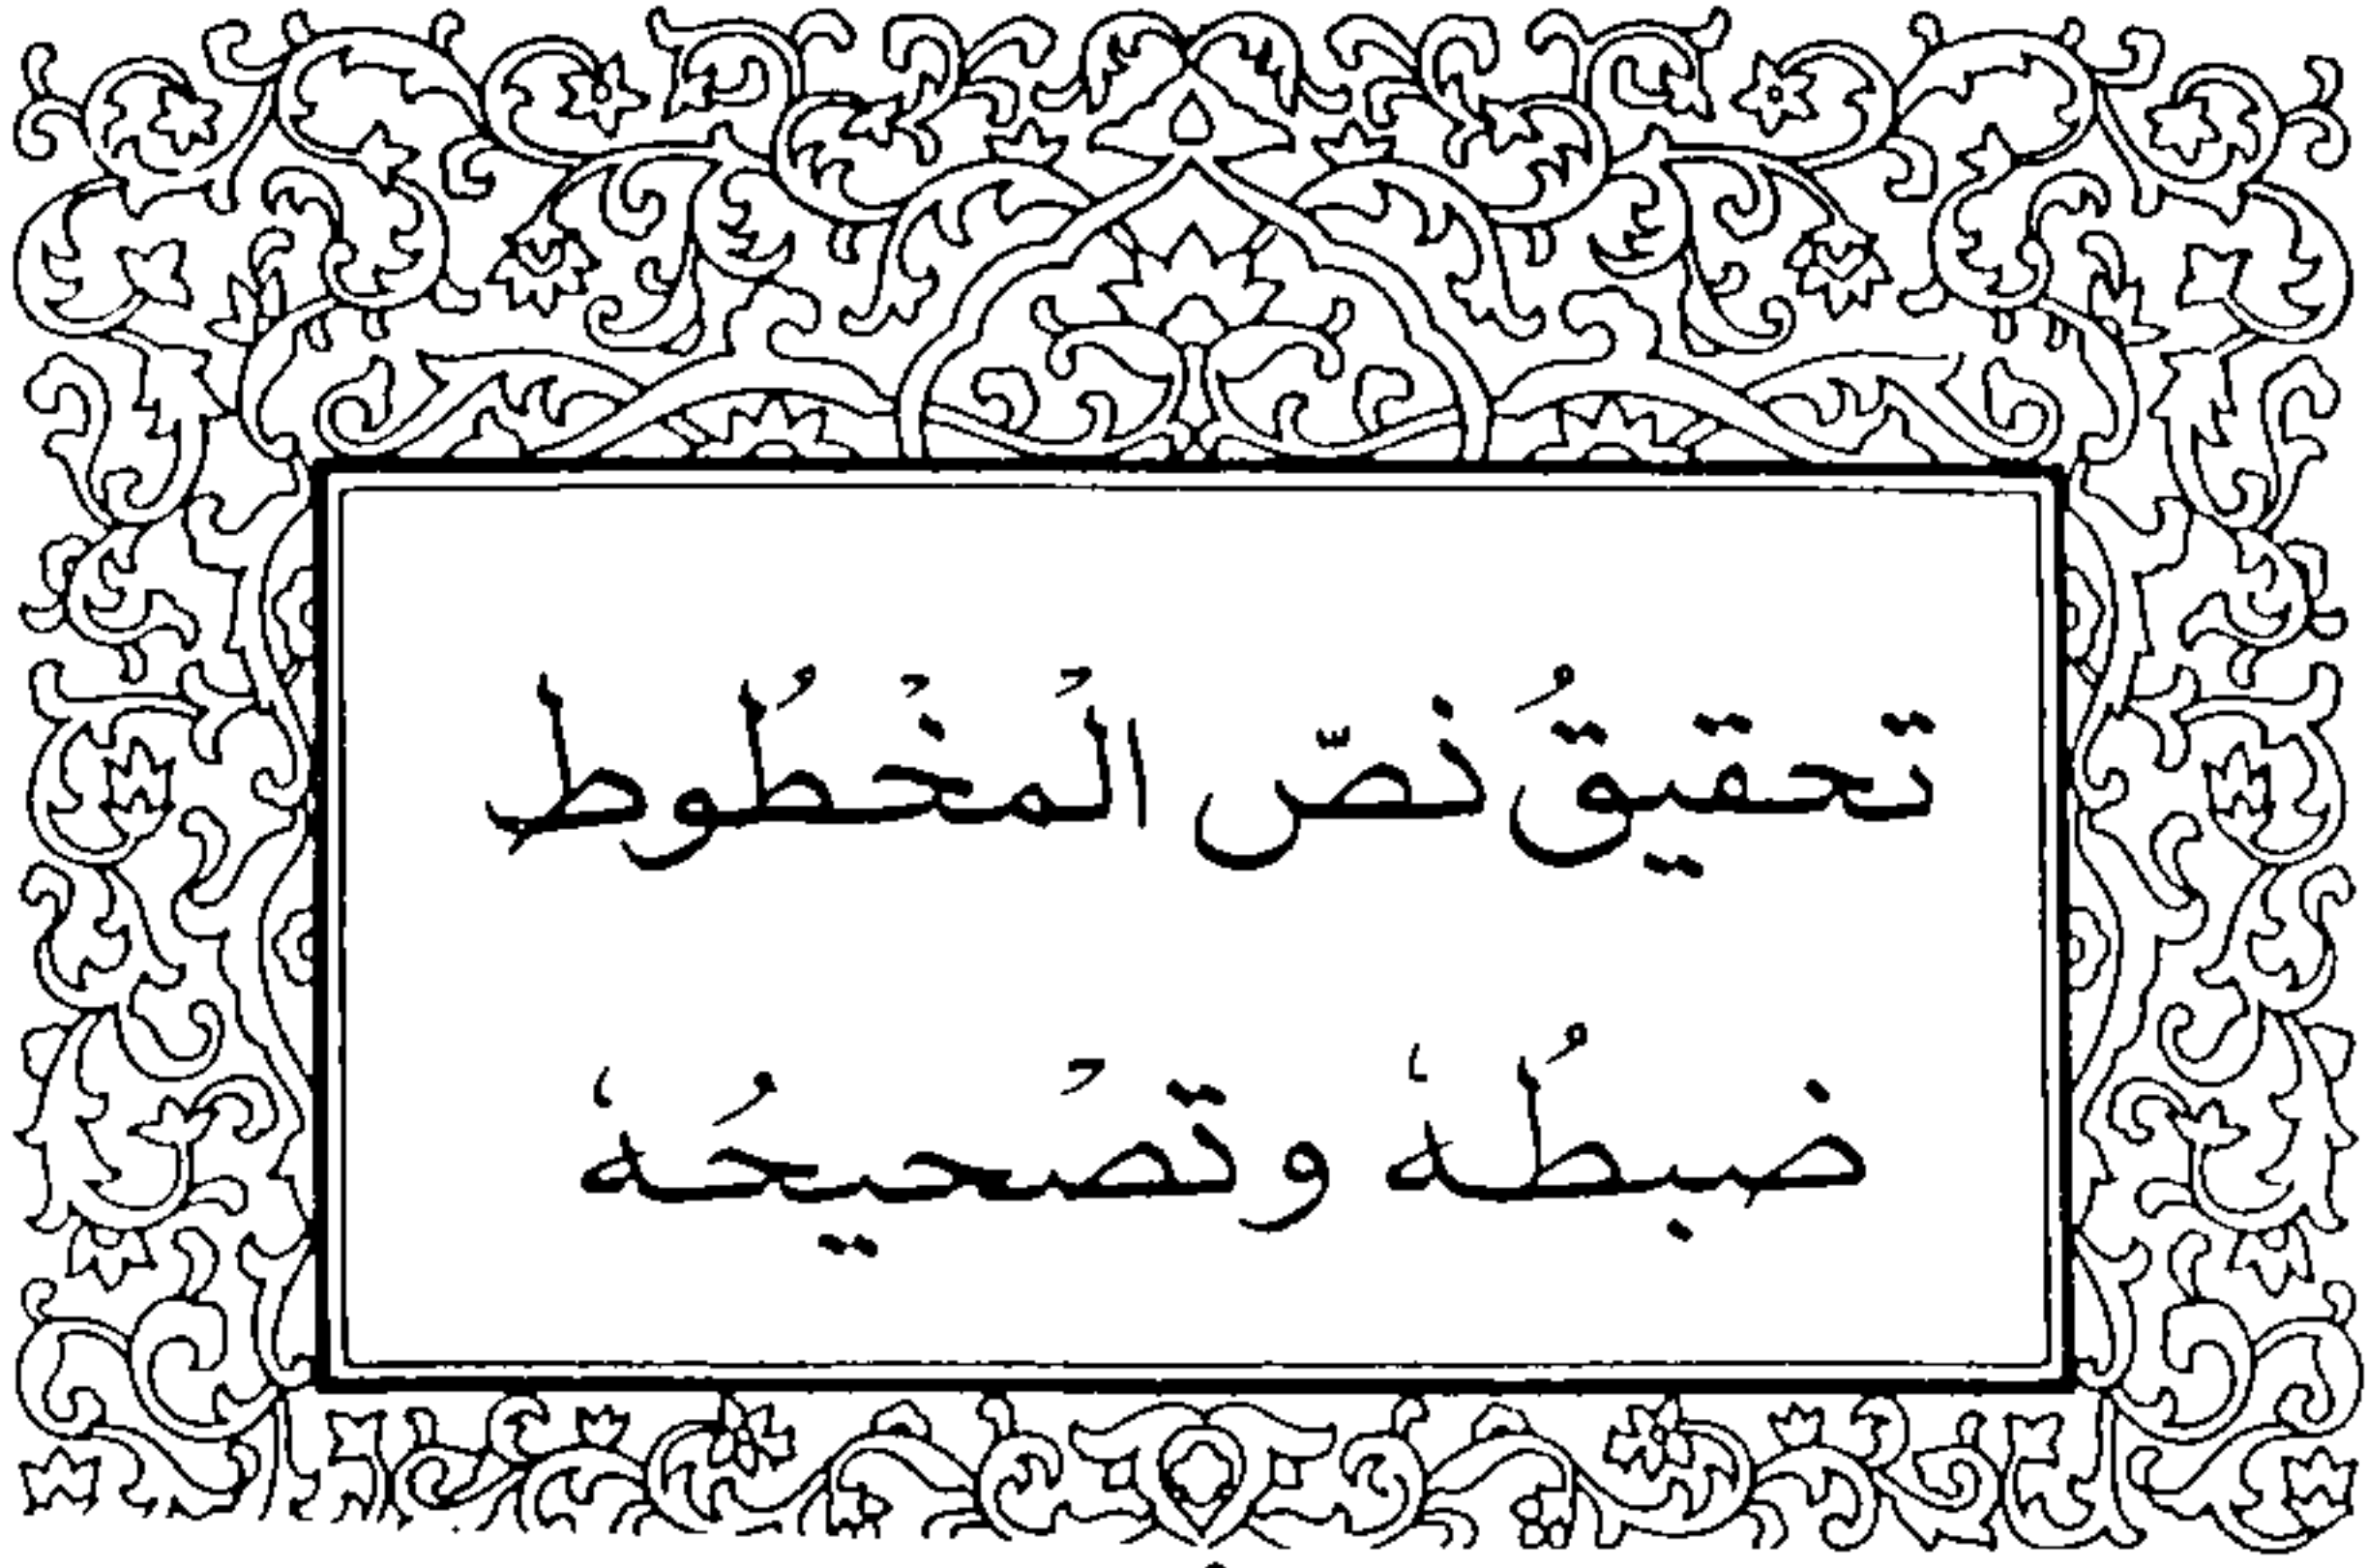 تحقيقُ نصّ الْمخْطُوط
ضبطُهُ وتصْحيحُهُ